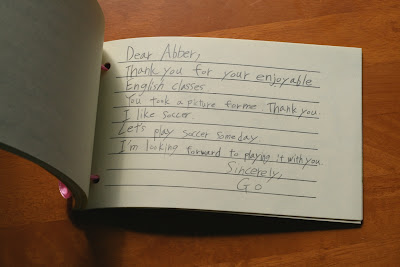 Dear Abber,
Thank you for your enjoyable
English classes
You took a picture for me. Thank you.
I like soccer.
Let's play soccer someday
I'm looking forward to playing it with you.
Sincerely,
Go